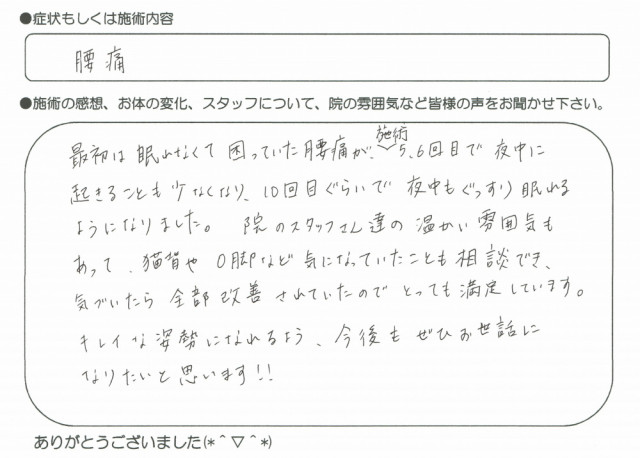 ●症状もしくは施術内容
腰痛
●施術の感想、お体の変化、スタッフについて、院の雰囲気など皆様の声をお聞かせ下さい。
最初は眠れなくて困っていた腰痛が、施術5、6回目で夜中に
起きることも少なくなり、10回目ぐらいで夜中もぐっすり眠れる
ようになりました。院のスタッフさん達の温かい雰囲気も
あって、猫背やO脚など気になっていたことも相談でき、
気づいたら全部改善されていたのでとっても満足しています。
キレイな姿勢になれるよう、今後もぜひお世話に
なりたいと思います!!
ありがとうございました(*＾▽＾*)